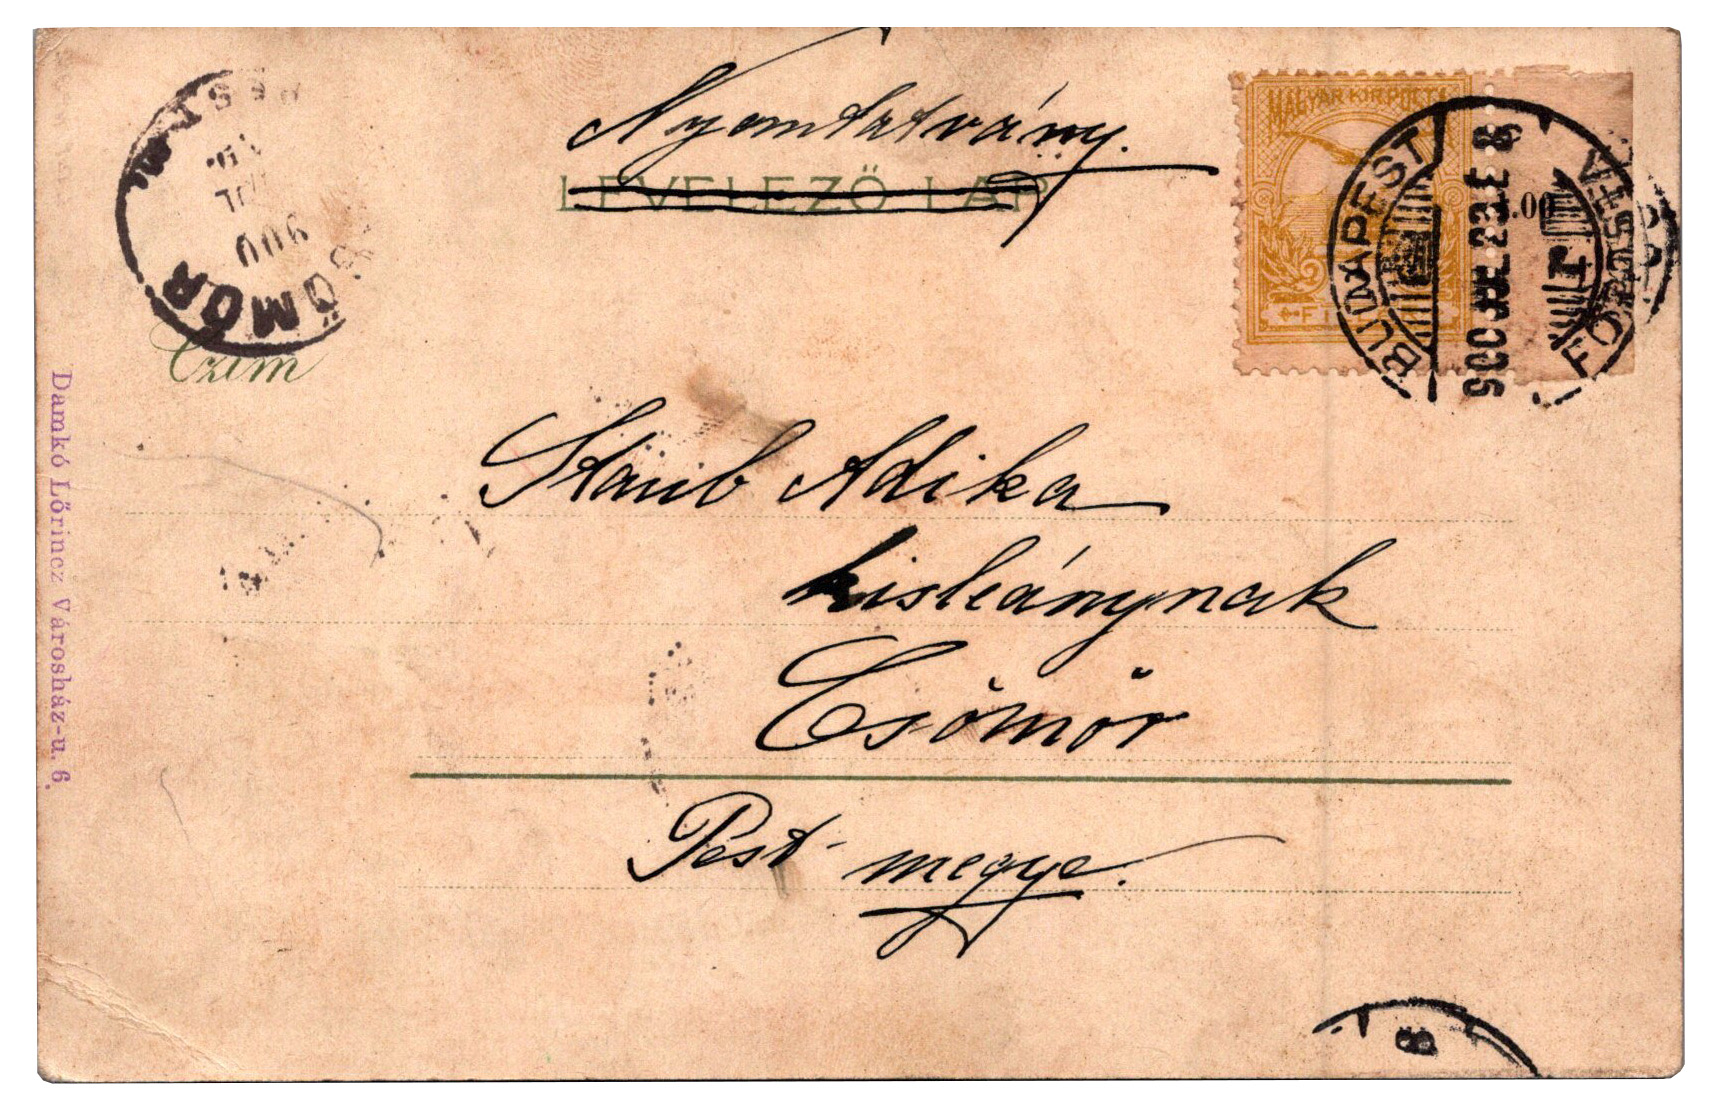 Nyomtatvány.
LEVELEZŐ LAP
MAGYAR KIR. POSTA
2
BUDAPEST
FŐPOSTA
900 JUL 23 E 8
ÖMÖR
900
JUL
Czim
Staub Adika
kisleánynak
Csömör
Pest-megye.
Damkó Lőrincz Városház-u. 6.
8